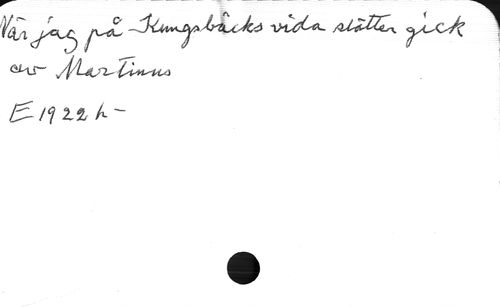 När jag på Kungsbacks vida slätter gick
av Martinus
E 1922 h-